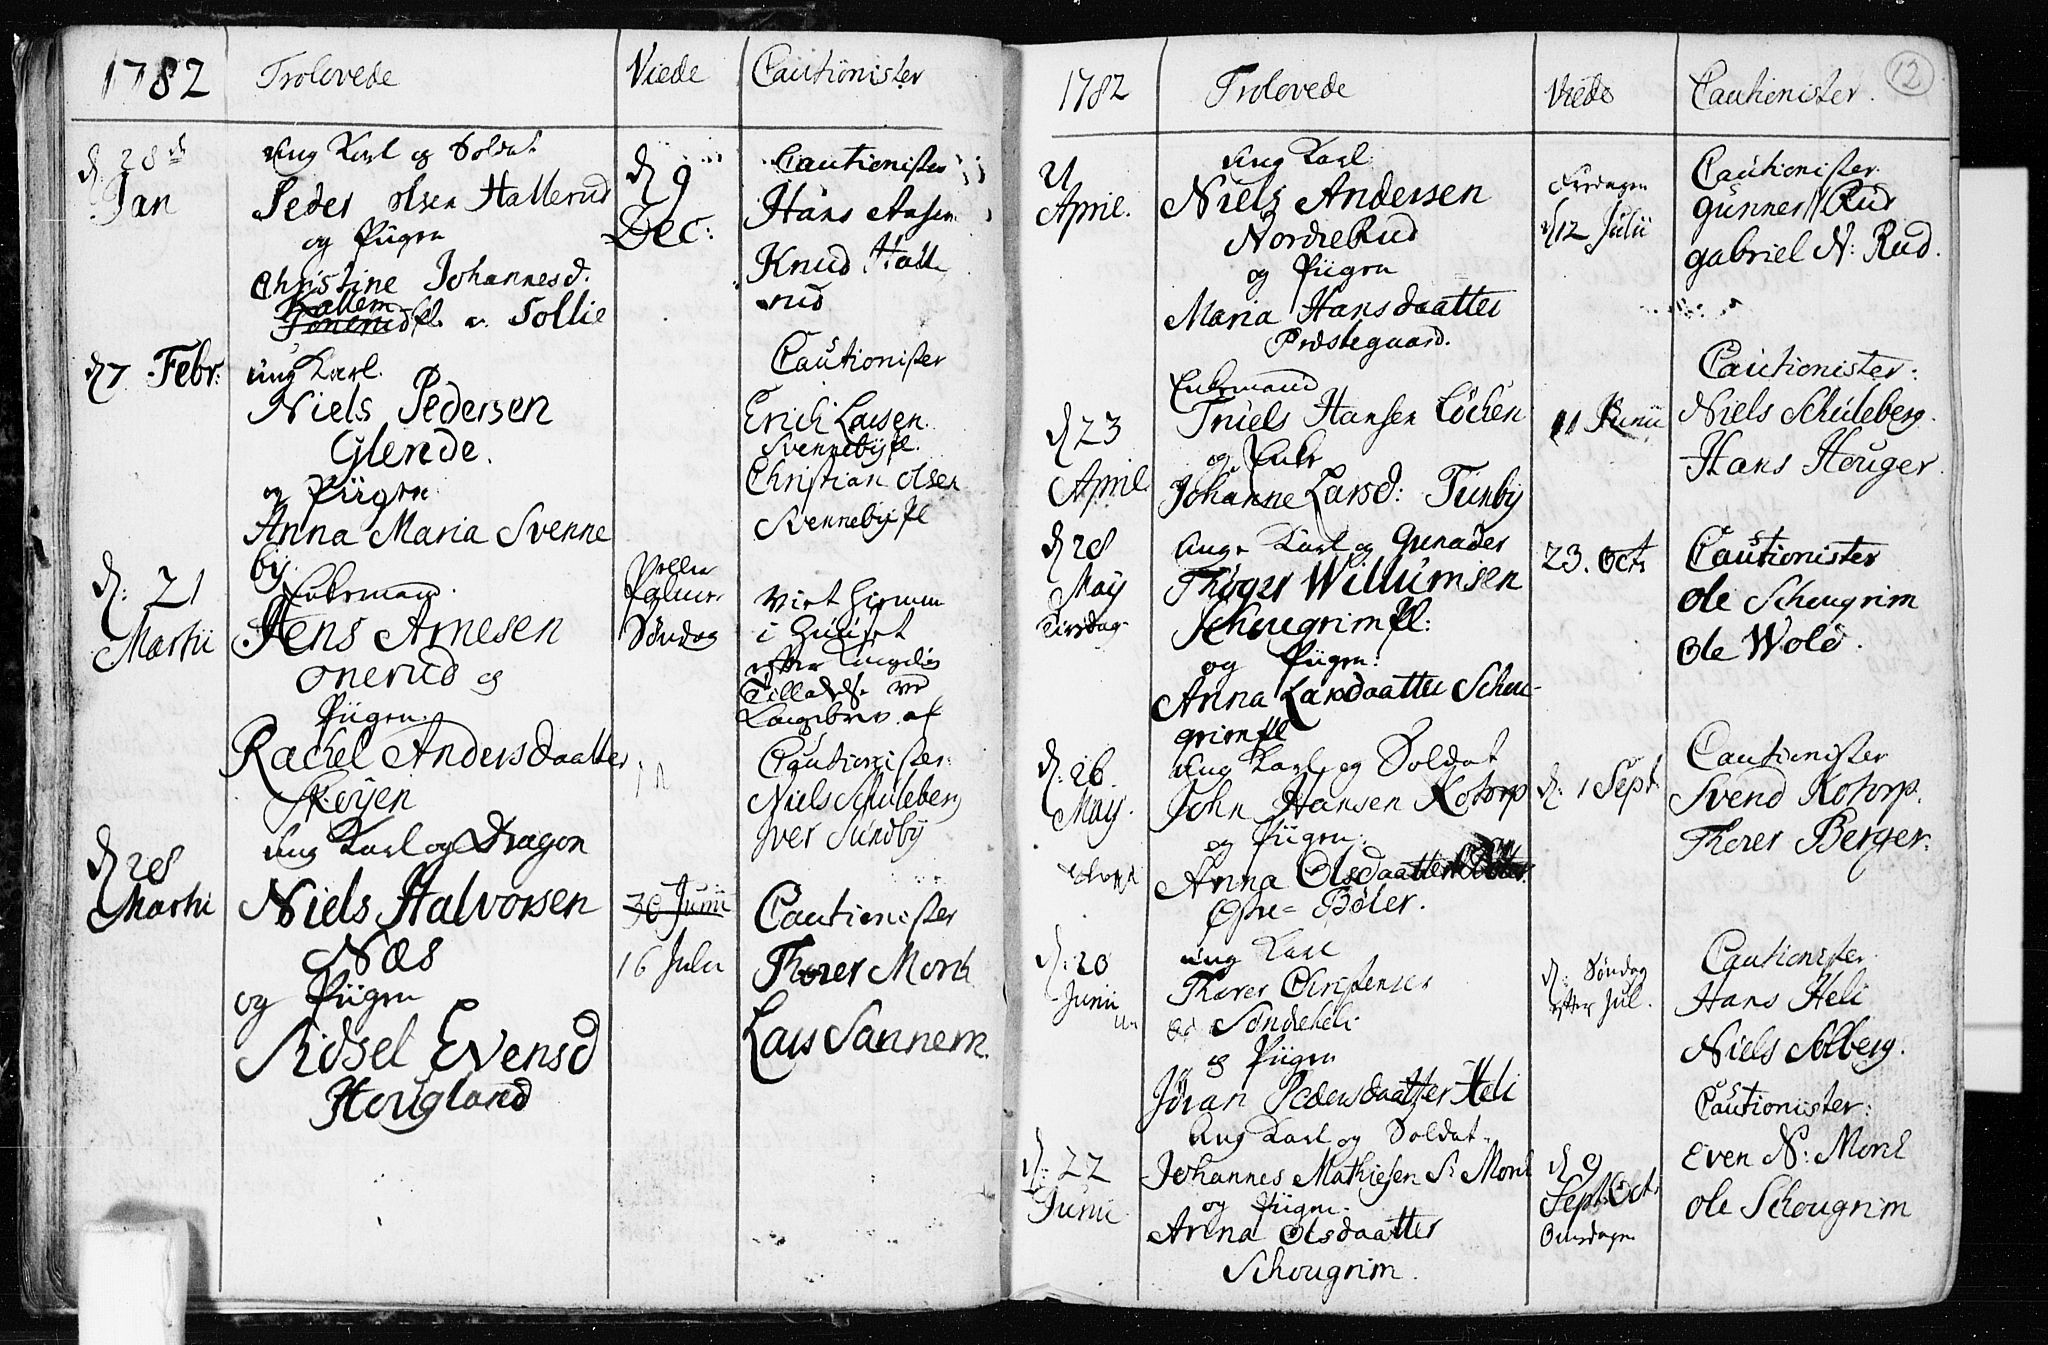 1782 Trolovede Viede Cautionister
d. 28de Jan
Ung Karl og Soldat
Peder Olsen Hallerud
og Pigen
Christine Johannesd.
Kallem
Jonerud pl. a. Sollie
d 9 Dec:
Cautionister
Hans
Knud Halle
rud
d 7 Febr:
ung Karl.
Niels Pedersen
Glende.
og Pigen
Anna Maria Svenne
by.
Cautionister
Erich Larsen
Svennebypl.
Christian Olsen
Svennebypl
d: 21
Martii
Enkemand.
Jens Arnesen
Onerud og
Pigen.
Rachel Andersdaatter
Skøyen
Palme
Søndag
Viet hiemme
i Huuset
efter Kongelig
Tilladelse ved
af
Cautionister:
Niels Schuleberg
Iver Sundby
d 28
Martii
Ung Karl og Dragon
Niels Halvorsen
Næs
og Pigen
Sidsel Evensd
Hougland
30 Junii
16 Julii
Cautionister
Thorer Morch
Lars Sannem.
12
1782 Trolovede Viede Cautionister.
April.
Ung Karl
Niels Andersen
NordreRud
og Pigen
Maria Hansdaatter
Præstegaard.
d 12 Julii
Cautionister
Gunner Rud
Gabriel N: Rud.
d 23
April
Enkemand
Truels Hansen Løchen
og Enke
Johanne Larsd: Tunby
11 Junii
Cautionister:
Niels Schuleberg.
Hans Houger.
d 28
May
Tirsdag
Ung Karl og Grenader
Thøger Willumsen
Schougrimpl:
og Pigen:
Anna Larsdaatter Schou-
grimpl
23. Oct
Cautionister
Ole Schougrim
Ole Wold.
d: 26
May.
Ung Karl og Soldat
John Hansen Kotorp
og Pigen:
Anna Olsdaatter
Østre= Bøler.
d: 1 Sept.
Cautionister
Svend Kotorp.
Thorer Berger.
d: 20
Junii
ung Karl
Thorer Christensen
Søndeheli
og Pigen
Jøran Pedersdaatter Heli
d: Søndag
efter Jul.
Cautionister.
Hans Heli
Niels Solberg.
d: 22
Junii
Ung Karl og Soldat
Johannes Mathiesen S: Morch
og Pigen
Anna Olsdaatter
Schougrim.
d 9
Sept. Oct
Onsdagen
Cautionister:
Even N: Morch
Ole Schougrim